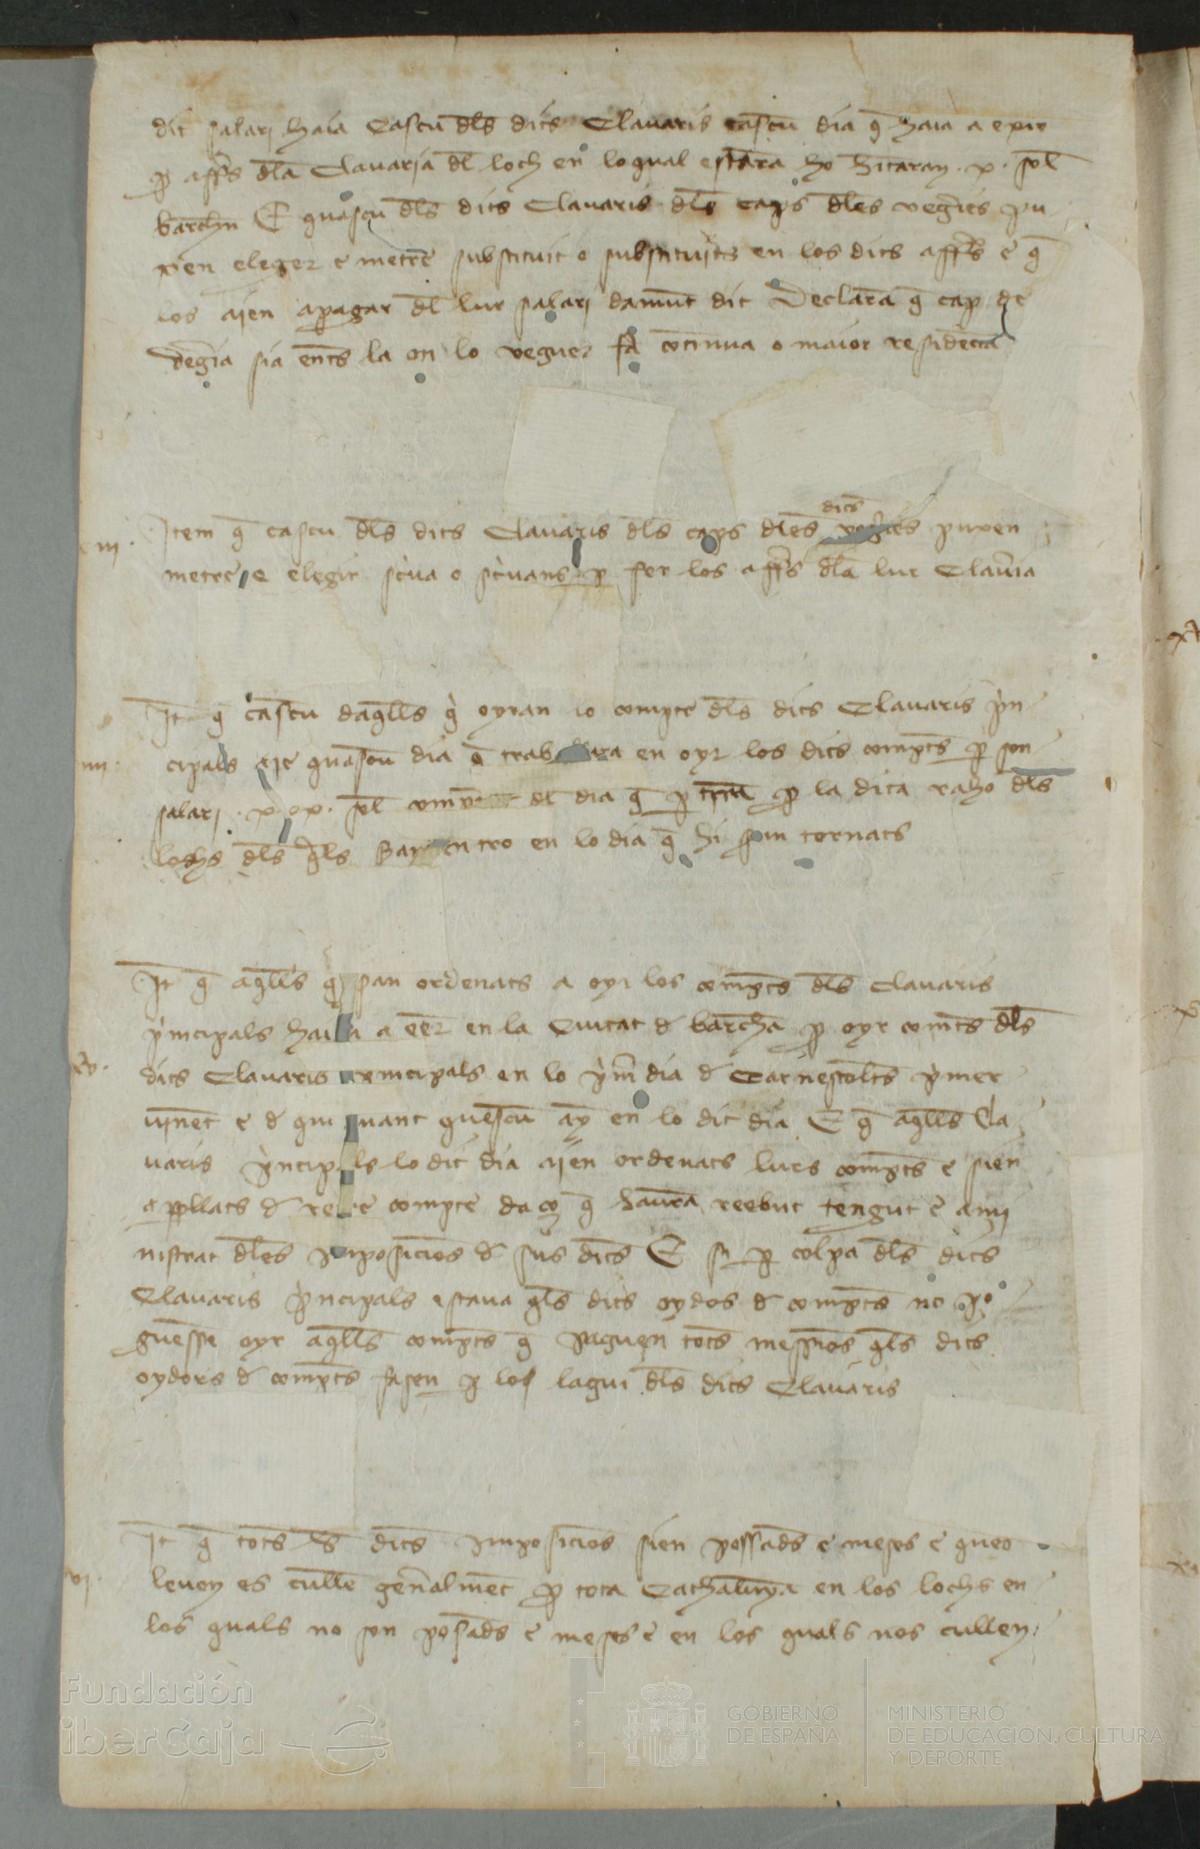 dit salari haia Cascu dls dits Clauaris cascu dia q̄ haia a exir
p affs dla Clauaria dl loch en loqual estara ho hitaran . x . sol
barchn E quascu dls dits Clauaris dls caps dles vegies pu
xen eleger e metre substituit o substituits en los dits affs e q̄
los aien apagar dl lur salari damūt dit Declara q̄ cap de
vegia sia enes la on lo veguer fa cōtinua o maior residecia
iii.
Item q̄ cascu dls dits Clauaris dls caps dles dits vegies puxen
metre e elegir scua o scuans p fer los affs dla lur Clauia
iiii.
It q̄ cascu daqlls q̄ oyran lo compte dls dits Clauaris pn
cipals aie quascu dia q̄ trab en oyr los dits compts p son
salari . x sol dl dia q̄ p p la dita raho dls
lochs dls qls en tro en lo dia q̄ hi tornats
v.
It q̄ aqlls q̄ san ordenats a oyr los compts dls clauaris
pincipals a eer en la Ciutat d barcha p oyr comts dls
dits Clauaris pincipals en lo pm dia d Carnestolts pmer
vinēt e d qui auant quescu ay en lo dit dia E q̄ aqlls Cla
uaris pncipals lo dit dia aien ordenats lurs compts e sien
appllats d retre compte daço q̄ haura reebut tengut e ami
nistrat dles imposicios d sus dits E si p colpa dls dits
Clauaris pncipals estaua qls dits oydos d compts no po
guesse oyr aqlls compts q̄ paguen tots messios qls dits
oydors d compts fasen p los lagui dls dits Clauaris
vi.
It q̄ tots ls dits imposicios sien possads e meses e ques
leuen es culle genalmēt p tota Cathalunya en los lochs en
los quals no son posads e meses e en los quals nos cullen
Fundación
iberCaja
GOBIERNO
DE ESPAÑA
MINISTERIO
DE EDUCACIÓN, CULTURA
Y DEPORTE